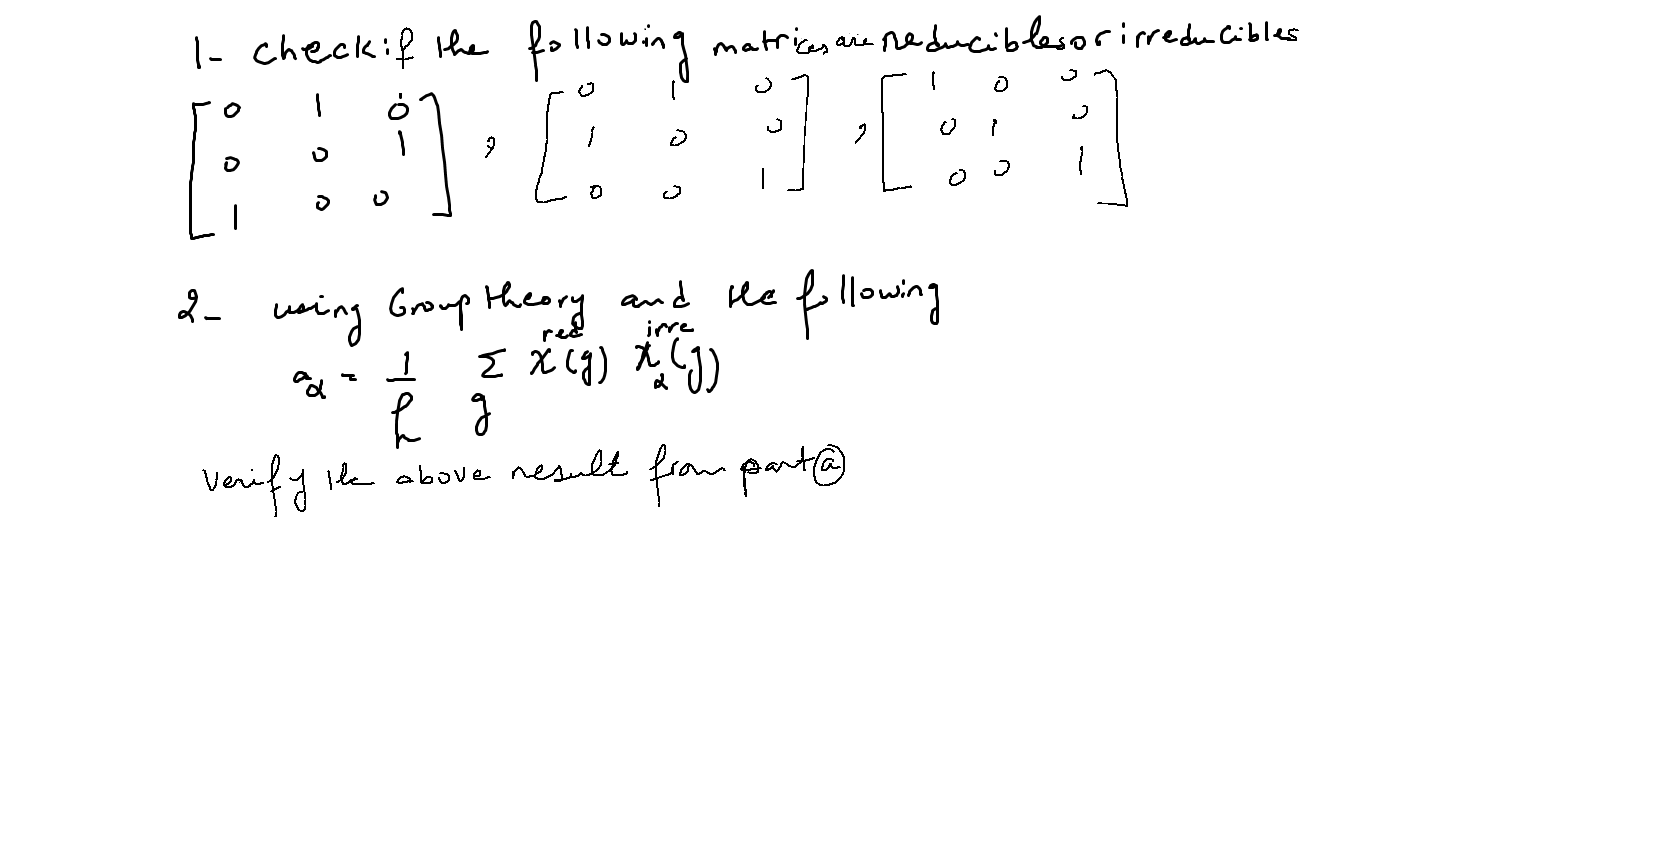 1- check if the following matrices are reducibles or irreducibles
[0 1 0 , [0 1 0 , [1 0 0
0 0 1 1 0 0 0 1 0
1 0 0] 0 0 1] 0 0 1]
2- using Group theory and the following
a_α = 1/h Σ_g χ^red(g) χ_α^irre(g)
Verify the above result from part ⓐ